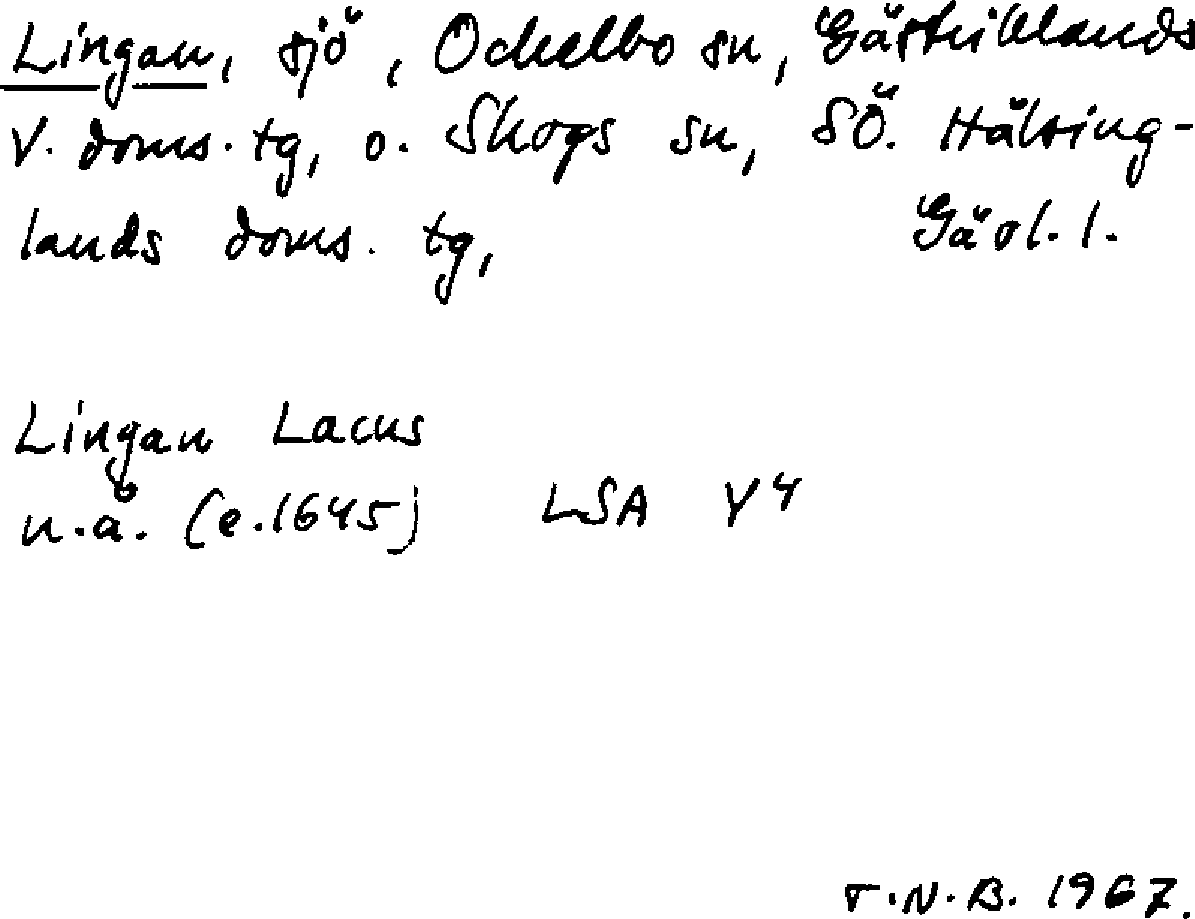 Lingan, sjö, Ockelbo sn, Gästriklands
V. doms. tg, o. Skogs sn, SÖ. Hälsing-
lands doms. tg, Gävl. l.
Lingan Lacus
n.å. (e.1645) LSA Y4
T.N.B. 1967.